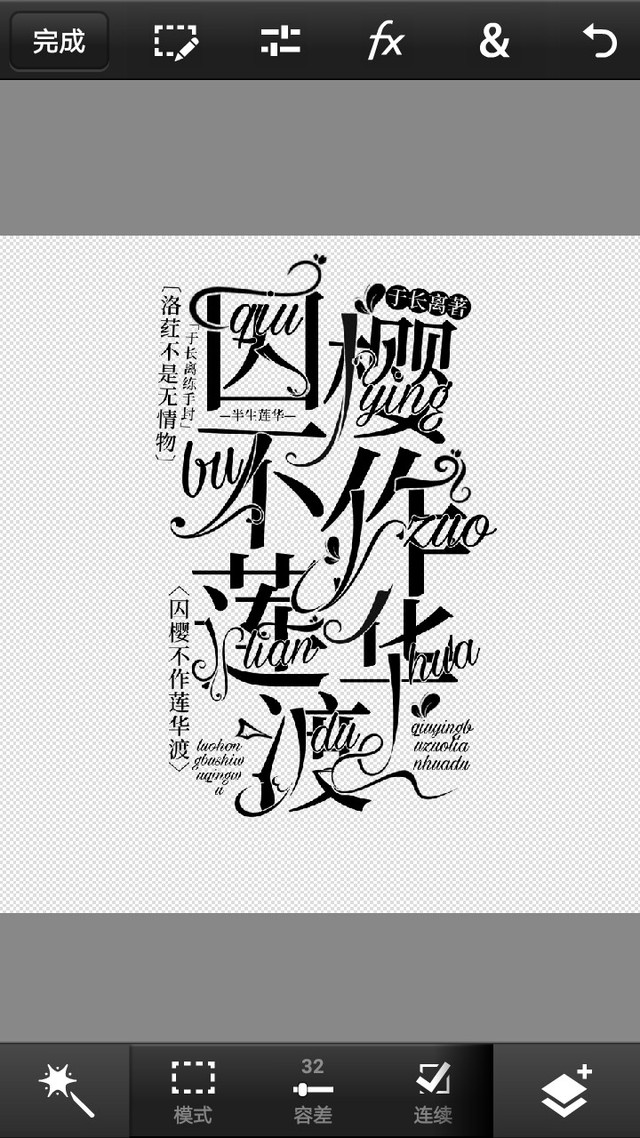 完成
fx
&
〔洛荭不是无情物〕
「于长离练手封」
于长离著
囚樱
qiu
ying
—半生莲华—
不作
bu
zuo
莲华
lian
hua
渡
du
〈囚樱不作莲华渡〉
luohon
gbushiw
uqingw
u
qiuyingb
uzuolia
nhuadu
32
模式
容差
连续